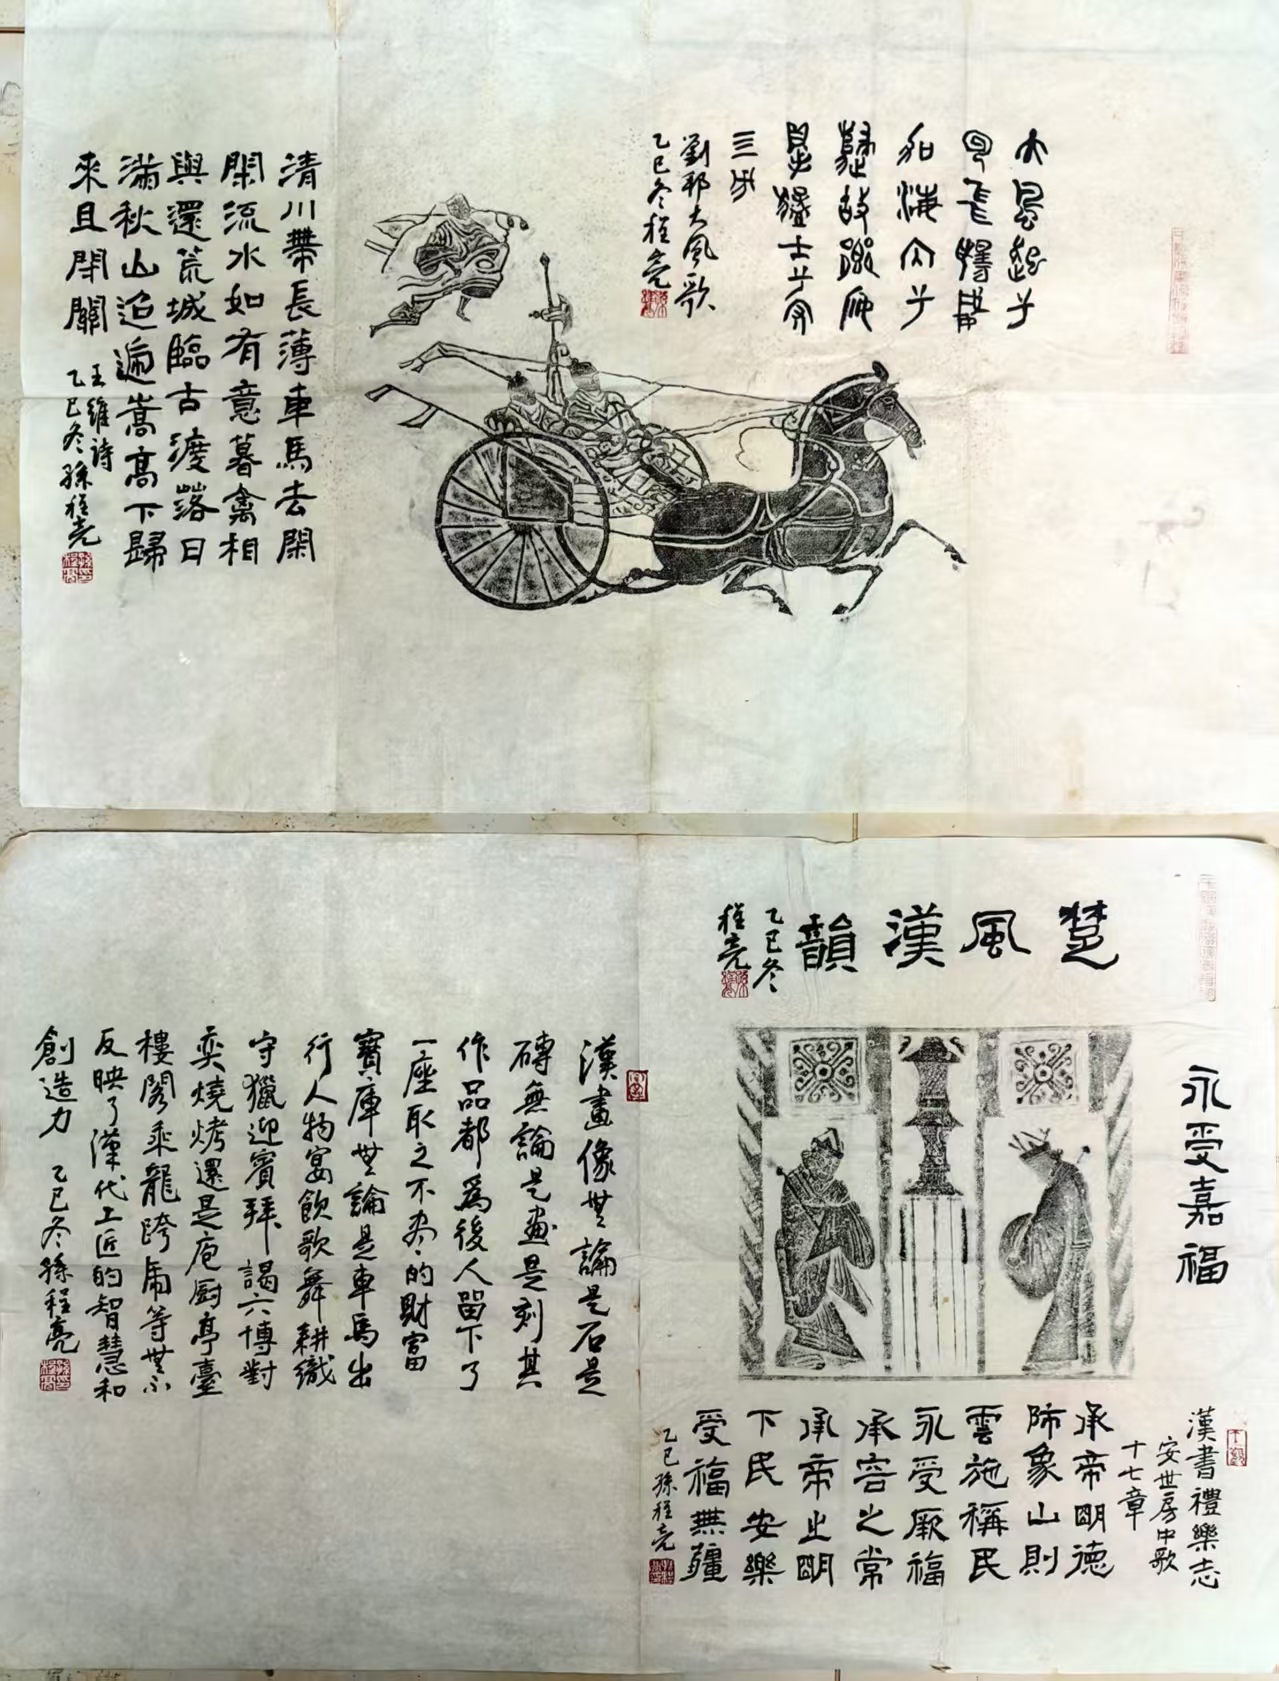 大風起兮
雲飛揚威
加海內兮
歸故鄉安
得猛士兮守
四方
劉邦大風歌
乙巳冬程亮
清川帶長薄車馬去閑
閑流水如有意暮禽相
與還荒城臨古渡落日
滿秋山迢遞嵩高下歸
來且閉關
王維詩
乙巳冬孫程亮
楚風漢韻
乙巳冬
程亮
永受嘉福
漢書禮樂志
安世房中歌
十七章
承帝明德
師象山則
雲施稱民
永受厥福
承容之常
承帝之明
下民安樂
受福無疆
乙巳孫程亮
漢畫像無論是石是
磚無論是畫是刻其
作品都爲後人留下了
一座取之不盡的財富
寶庫無論是車馬出
行人物宴飲歌舞耕織
守獵迎賓拜謁六博對
奕燒烤還是庖厨亭臺
樓閣乘龍跨虎等無不
反映了漢代工匠的智慧和
創造力 乙巳冬孫程亮